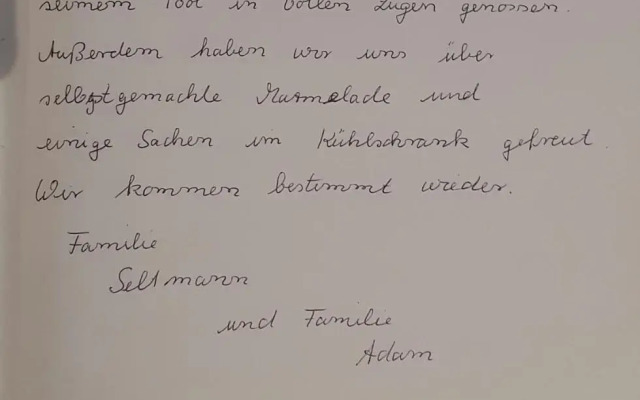 seinem Pool in vollen Zügen genossen.
Außerdem haben wir uns über
selbstgemachte Marmelade und
einige Sachen im Kühlschrank gefreut.
Wir kommen bestimmt wieder.
Familie
Sellmann
und Familie
Adam